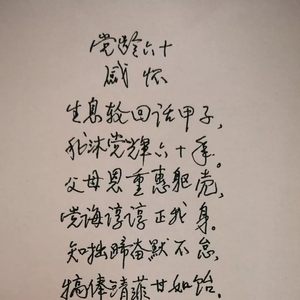 党龄六十
感怀
生息轮回话甲子,
沐党辉六十年。
父母恩重惠躯壳,
党诲谆谆正我身。
知拙蹄奋默不怠,
犒俸清菲甘如饴.